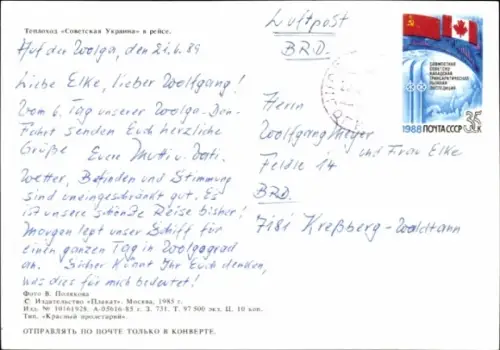 Теплоход «Советская Украина» в рейсе.
Auf der Wolga, den 21.6.89
Liebe Elke, lieber Wolfgang!
Vom 6. Tag unserer Wolga-Don-
Fahrt senden Euch herzliche
Grüße Eure Mutti u. Vati.
Wetter, Befinden und Stimmung
sind uneingeschränkt gut. Es
ist unsere schönste Reise bisher!
Morgen legt unser Schiff für
einen ganzen Tag in Woolgograd
an. Sicher könnt Ihr Euch denken,
was dies für mich bedeutet!
Фото В. Полякова
© Издательство «Плакат». Москва, 1985 г.
Изд. № 10161928. А-05616-85 г. З. 731. Т. 97 500 экз. Ц. 10 коп.
Тип. «Красный пролетарий».
ОТПРАВЛЯТЬ ПО ПОЧТЕ ТОЛЬКО В КОНВЕРТЕ.
Luftpost
BRD.
Herrn
Wolfgang Meyer
und Frau Elke
Feldle 14
BRD
7181 Kreßberg-Waldtann
СОВМЕСТНАЯ
СОВЕТСКО-
КАНАДСКАЯ
ТРАНСАРКТИЧЕСКАЯ
ЛЫЖНАЯ
ЭКСПЕДИЦИЯ
1988 ПОЧТА СССР 35 к